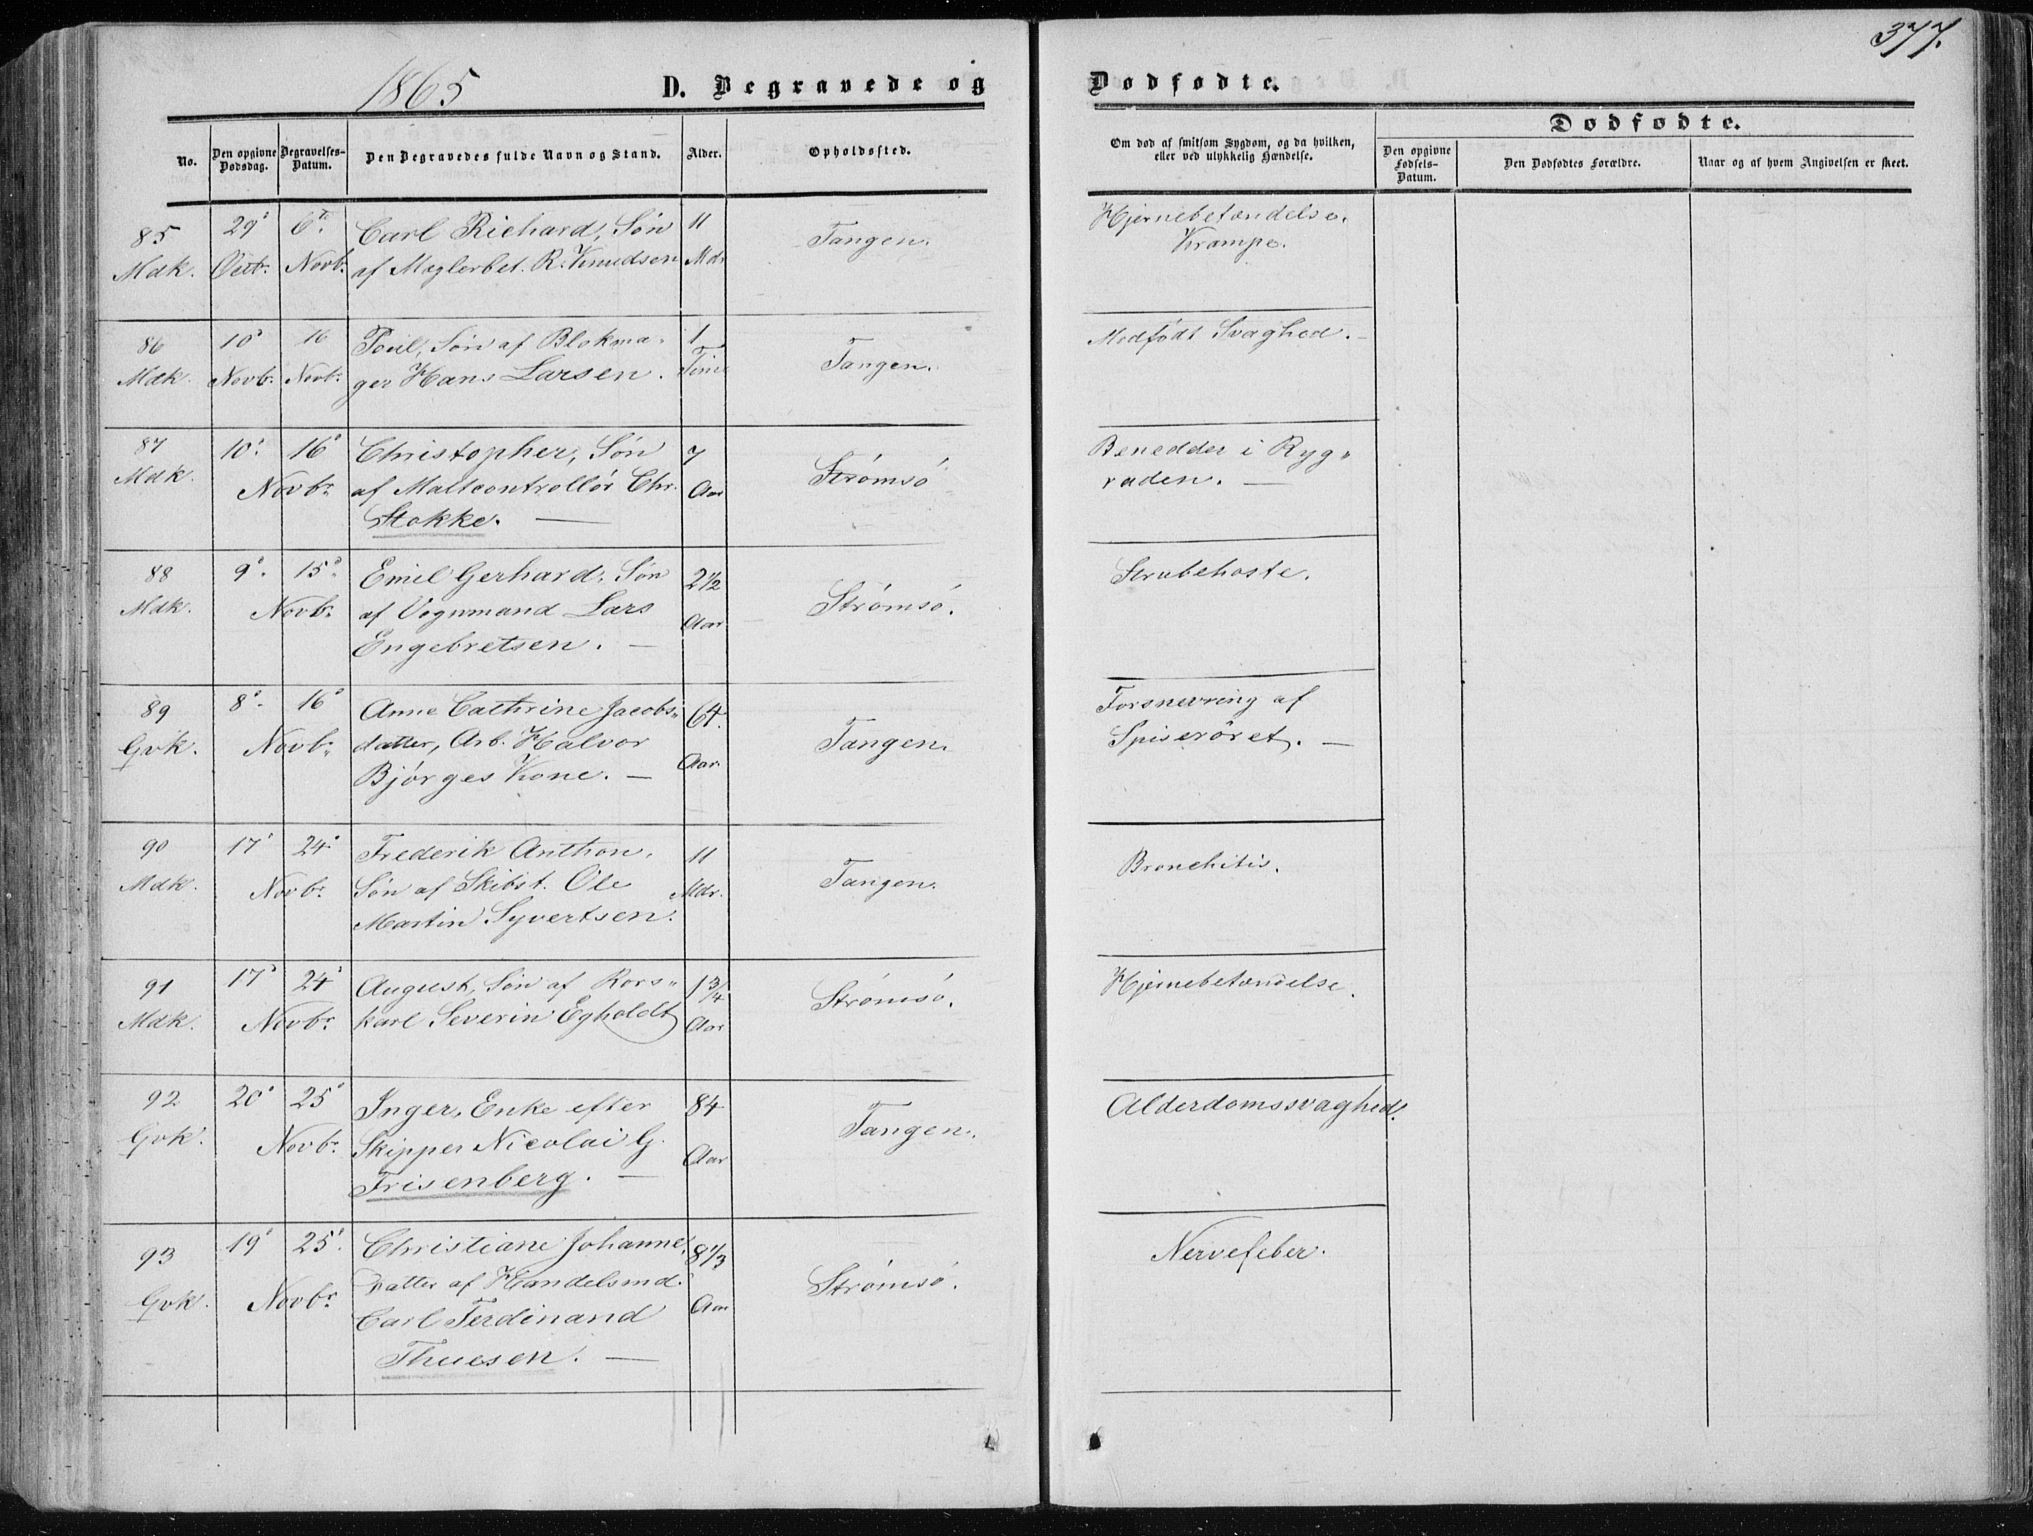 377.
1865 D. Begravede og Dødfødte.
No. Den opgivne Dødsdag. Begravelses-Datum. Den Begravedes fulde Navn og Stand. Alder. Opholdssted. Om død af smitsom Sygdom, og da hvilken, eller ved ulykkelig Hændelse. Dødfødte.
Den opgivne Fødsels-Datum. Den Dødfødtes Forældre. Naar og af hvem Angivelsen er skeet.
85 29 6 Carl Richard, Søn 11 Tangen. Hjernebetændelse.
Mdk. Octb. Novb. af Mæglerbet. R. Knudsen Mdr Krampe.
86 10 16 Poul, Søn af Blokma- 1 Tangen. Medfødt Svaghed. -
Mdk. Novb. Novb. ger Hans Larsen. Time
87 10 16 Christopher, Søn 7 Strømsø Benedder i Ryg-
Mdk. Novbr. af Maltcontrollør Chr. Aar raden. —
Stokke. —
88 9 15 Emil Gerhard, Søn 2½ Strømsø. Strubehoste.
Mdk. Novbr. af Vognmand Lars Aar
Engebretsen. —
89 8 16 Anne Cathrine Jacobs- 64 Tangen. Forsnevring af
Gvk. Novbr. datter, Arb. Halvor Aar Spiserøret. —
Bjørges Kone. —
90 17 24 Frederik Anthon, 11 Tangen. Bronchitis.
Mdk. Novbr. Søn af Skibst. Ole Mdr.
Martin Syvertsen.
91 17 24 August, Søn af Kors- 1¾ Strømsø. Hjernebetændelse.
Mdk. Novbr. karl Severin Egholdt Aar
92 20 25 Inger, Enke efter 84 Tangen. Alderdomssvaghed.
Gvk. Novbr. Skipper Nicolai G. Aar
Frisenberg. —
93 19 25 Christiane Johanne, 8⅓ Strømsø. Nervefeber.
Gvk. Novbr. Datter af Handelsmd. Aar
Carl Ferdinand
Thuesen. —